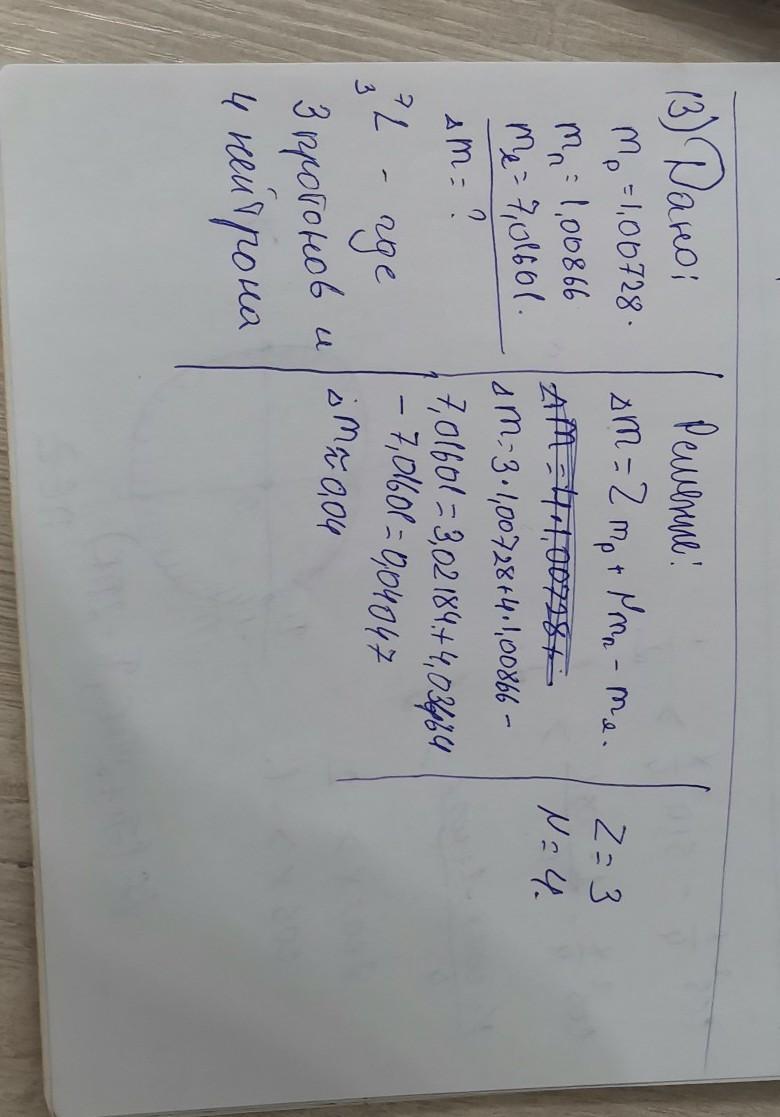 13) Дано:
m_p = 1,00728.
m_n = 1,00866
m_я = 7,01601.
Δm = ?
⁷₃L - где
3 протонов и
4 нейтрона
Решение:
Δm = Zm_p + Nm_n - m_я.
Δm = 4·1,00728+
Δm = 3·1,00728+4·1,00866 -
7,01601 = 3,02184 + 4,03464
- 7,01601 = 0,04047
Δm ≈ 0,04
Z = 3
N = 4.